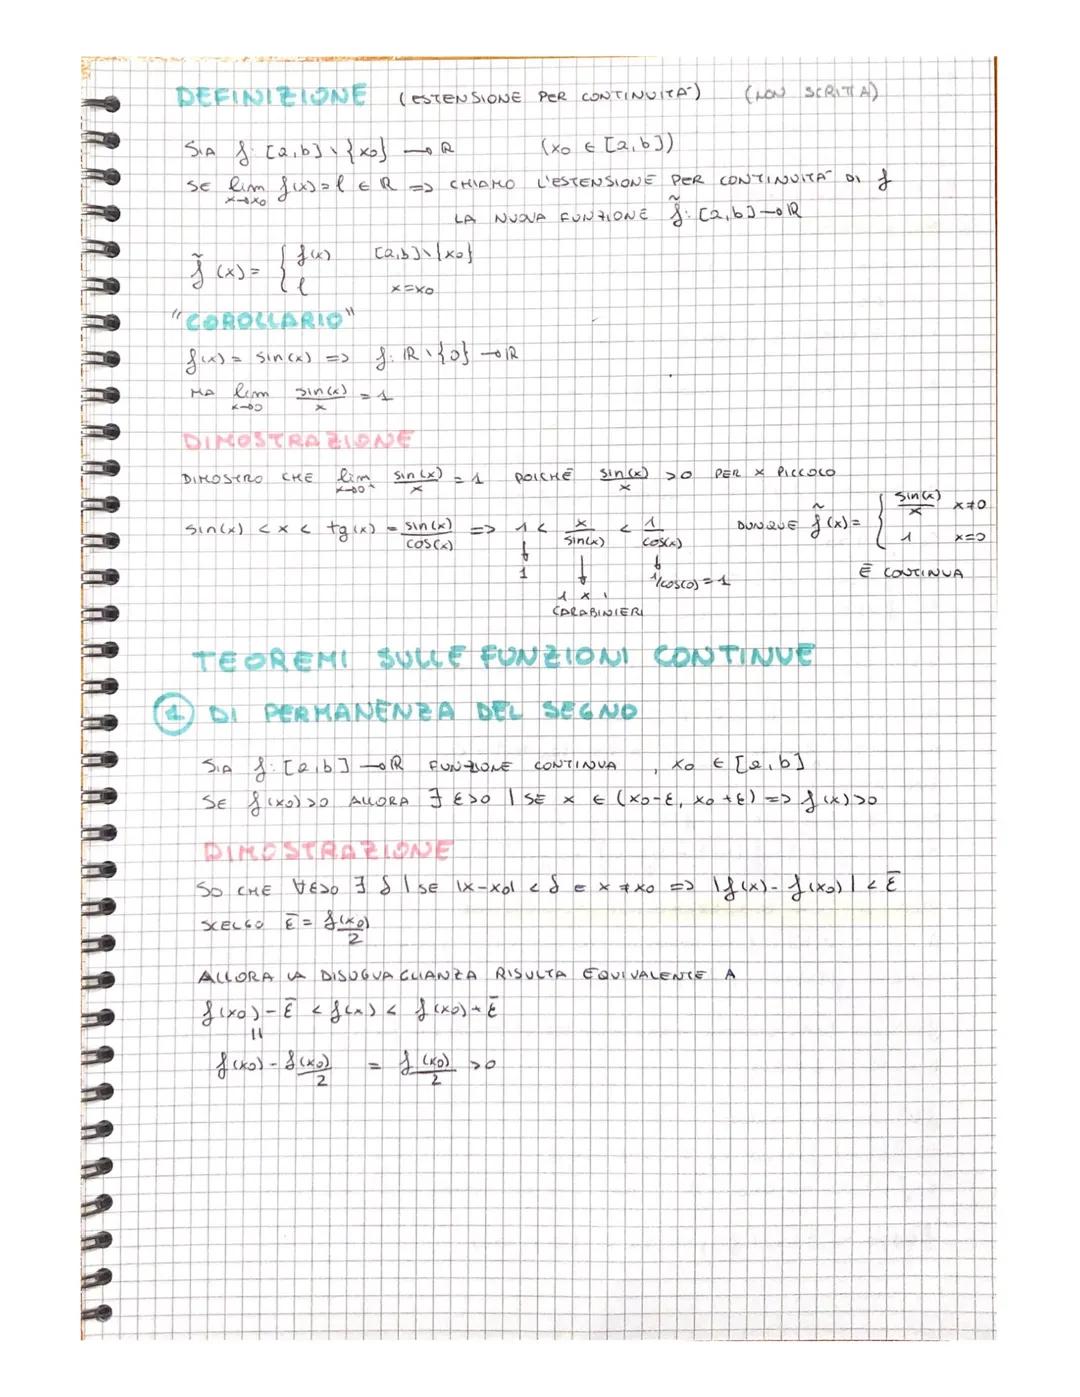 DEFINIZIONE (ESTENSIONE PER CONTINUITA') (NON SCRITTA)
SIA f: [a,b] \ {x0} → R (x0 ∈ [a,b])
SE lim x→x0 f(x) = l ∈ R => CHIAMO L'ESTENSIONE PER CONTINUITA' DI f
LA NUOVA FUNZIONE f̃: [a,b] → R
f̃(x) = { f(x) [a,b] \ {x0}
l x=x0
"COROLLARIO"
f(x) = sin(x) => f: R \ {0} → R
MA lim x→0 sin(x)/x = 1
DIMOSTRAZIONE
DIMOSTRO CHE lim x→0+ sin(x)/x = 1 POICHÈ sin(x)/x >0 PER x PICCOLO
sin(x) < x < tg(x) = sin(x)/cos(x) => 1 < x/sin(x) < 1/cos(x) DUNQUE f̃(x) = { sin(x)/x x≠0
1 x=0
↓ 1 ↓ ↓ 1/cos(0) = 1 È CONTINUA
1 x
CARABINIERI
TEOREMI SULLE FUNZIONI CONTINUE
1 DI PERMANENZA DEL SEGNO
SIA f: [a,b] → R FUNZIONE CONTINUA, x0 ∈ [a,b]
SE f(x0)>0 ALLORA ∃ ε>0 | SE x ∈ (x0-ε, x0+ε) => f(x)>0
DIMOSTRAZIONE
SO CHE ∀ε>0 ∃ δ | SE |x-x0| < δ e x ≠ x0 => |f(x) - f(x0)| < ε̄
SCELGO ε̄ = f(x0)/2
ALLORA LA DISUGUAGLIANZA RISULTA EQUIVALENTE A
f(x0) - ε̄ < f(x) < f(x0) + ε̄
=
f(x0) - f(x0)/2 = f(x0)/2 >0